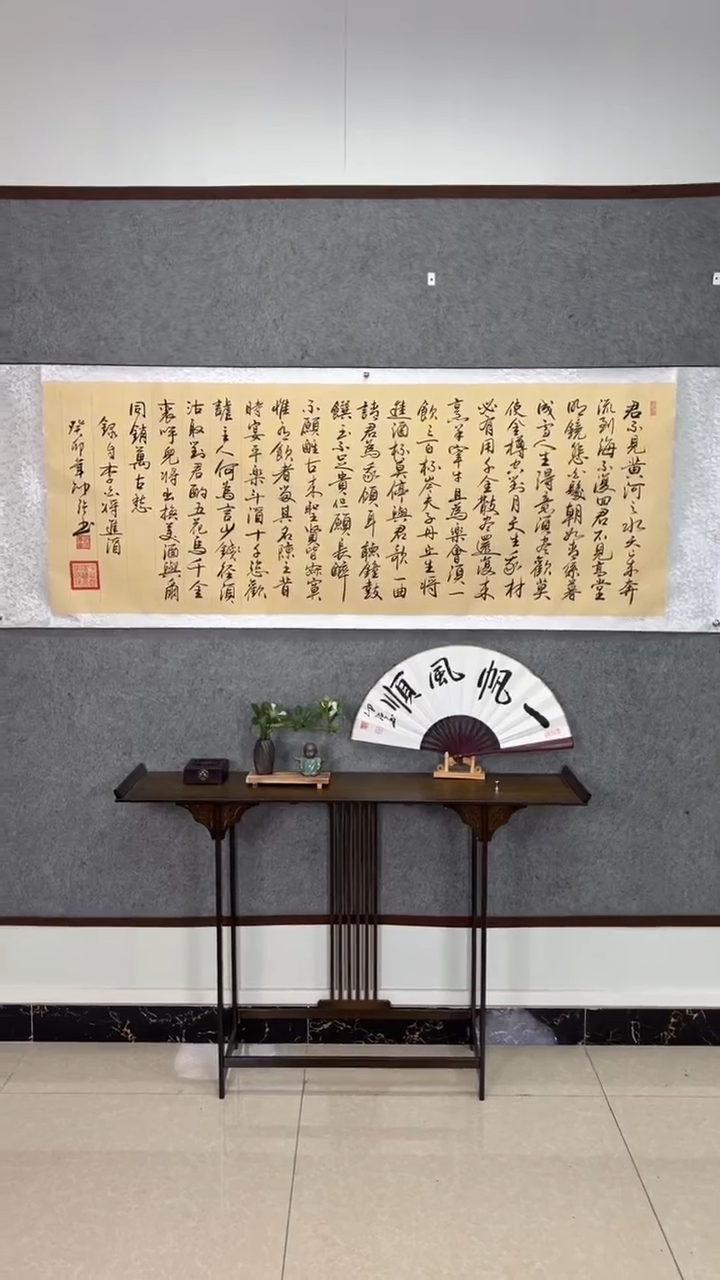 君不見黄河之水天上来奔
流到海不復回君不見高堂
明鏡悲白髮朝如青絲暮
成雪人生得意須尽歡莫
使金樽空對月天生我材
必有用千金散尽還復来
烹羊宰牛且為樂會須一
飲三百杯岑夫子丹丘生将
進酒杯莫停與君歌一曲
請君為我傾耳聽鐘鼓
饌玉不足貴但願長醉
不願醒古来聖賢皆寂寞
惟有飲者留其名陳王昔
時宴平樂斗酒十千恣歡
謔主人何為言少錢径須
沽取對君酌五花馬千金
裘呼兒将出換美酒與爾
同銷萬古愁
録自李白将進酒
癸卯年
一帆風順